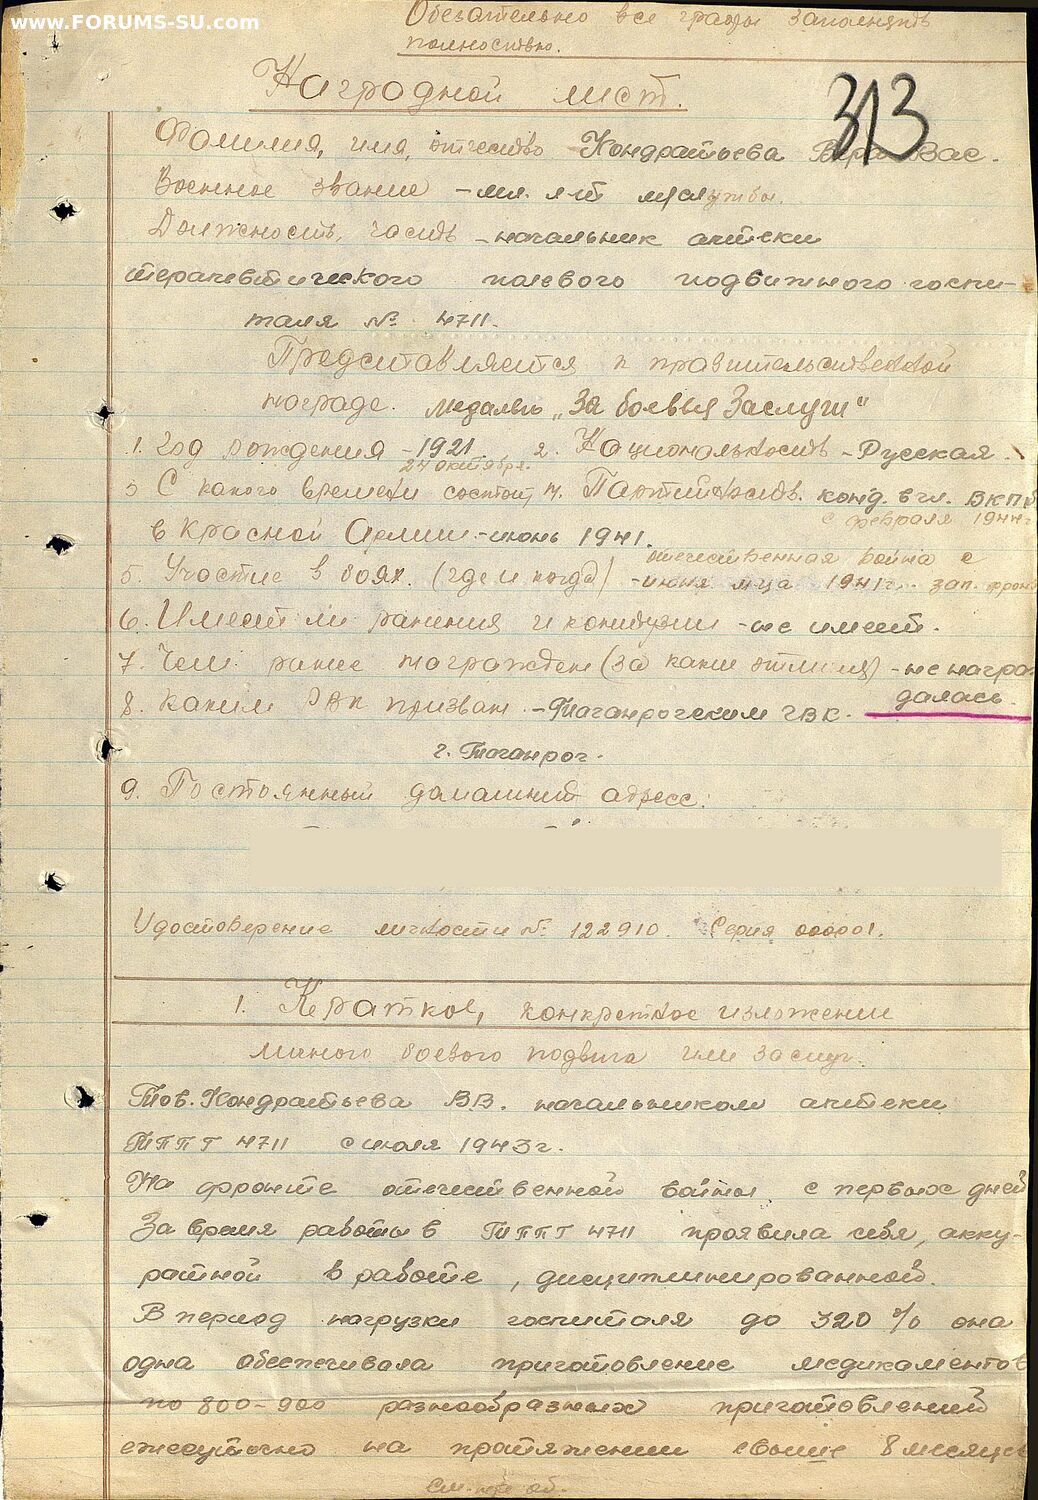 www.FORUMS-SU.com
Обезательно все графы заполнять
полностью.
Наградной лист.
313
Фамилия, имя, отчество Кондратьева Вера Вас.
Военное звание - мл. л-т м/службы.
Должность, часть - начальник аптеки
терапевтического полевого подвижного госпи-
таля № 4711.
Представляется к правительственной
награде. медалью „За боевыя Заслуги"
1. Год рождения - 1921 2. Национальность - Русская.
24 октября.
3 С какого времени состоит 4. Партийность. конд. в чл. ВКПб
с февраля 1944г
в Красной Армии - июнь 1941.
отечественная война с
5. Участие в боях. (где и когда) - июня м-ца 1941г. зап. фрон
6. Имеет ли ранения и контузии - не имеет.
7. Чем ранее награжден (за какие отличия) - не награ-
далась.
8. Каким РВК призван - Таганрогским ГВК.
г. Таганрог.
9. Постоянный домашний адресс:
Удостоверение личности № 122910. Серия 000001.
1. Краткое, конкретное изложение
личного боевого подвига или заслуг.
Тов. Кондратьева В.В. начальником аптеки
ТППГ 4711 с июля 1943г.
На фронте отечественной войны с первых дней
За время работы в ТППГ 4711 проявила себя, акку-
ратной в работе, дисциплинированной.
В период нагрузки госпиталя до 320 % она
одна обеспечивала приготовление медикаментов
по 800-900 разнообразных приготовлений
ежесуточно на протяжении свыше 8 месяцев
см. на об.